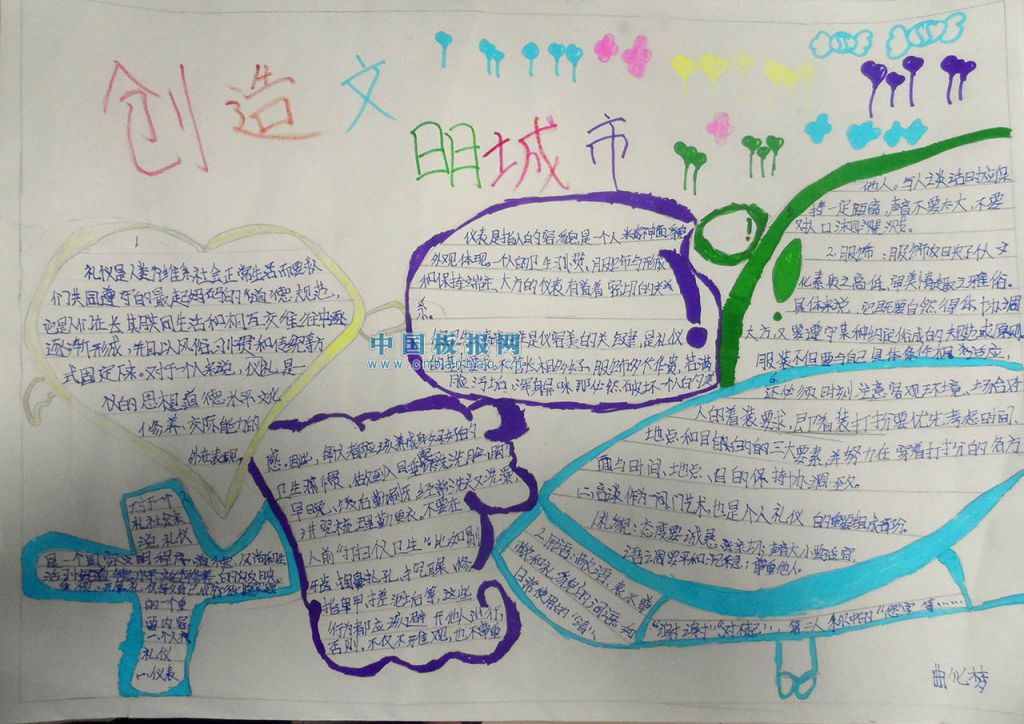 创造文
明城市
1
礼仪是人类为维系社会正常生活而要求人
们共同遵守的最起码的道德规范,
它是人们在长期共同生活和相互交往中逐
逐渐形成,并且以风俗、习惯和传统等方
式固定下来。对于个人来说,仪礼是一
仪的思想道德水平、文化
修养、交际能力的
外在表现
对于一个
礼社会来
说,礼仪
是一个国家文明程序、道德
的一个重
要内容
一个人
礼仪
(一)仪表
仪表是指人的容貌是一个人精神面貌
外观体现。一个人的卫生习惯、服饰与形成
和保持端正、大方的仪表有着密切的关
系。
1.卫生:清洁卫生是仪容美的关键,是礼仪
的基本要求。不管长相多好,服饰多华贵,若满
脸污垢,浑身异味,那必然破坏一个人的美
感。因此,每个人都应该养成良好的
卫生习惯,做到入睡起床洗脸、脚
早晚、饭后勤刷牙,经常洗头又洗澡
讲究梳理勤更衣。不要在
人前"打扫个人卫生"比如剔
牙齿、掏鼻孔、挖耳屎、修
指甲、搓泥垢等,这些
行为都应该避开他人进行,
否则,不仅不雅观,也不尊重
他人。与人谈话时应保
持一定距离,声音不要太大,不要
对人口沫四溅。
2.服饰:服饰反映了一个人文
化素质之高低,审美情趣之雅俗。
具体来说,它既要自然得体,协调
大方,又要遵守某种约定俗成的规范或原则。
服装不但要与自己具体条件相适应,
还必须时刻注意客观环境、场合对
人的着装要求,即着装打扮要优先考虑时间、
地点和目的的三大要素,并努力在穿着打扮的各方
面与时间、地点、目的保持协调一致。
(二)言谈作为一门艺术,也是个人礼仪的重要组成部分。
1.礼貌:态度要诚恳、亲切;声音大小要适宜,
语调要平和沉稳;尊重他人。
2.用语:敬语,表示尊
敬和礼貌的词语。如
日常使用的"请"、
"谢谢""对不起",第二人称中的"您"字等……
曲化梦
中国板报网
www.cnbanbao.cn